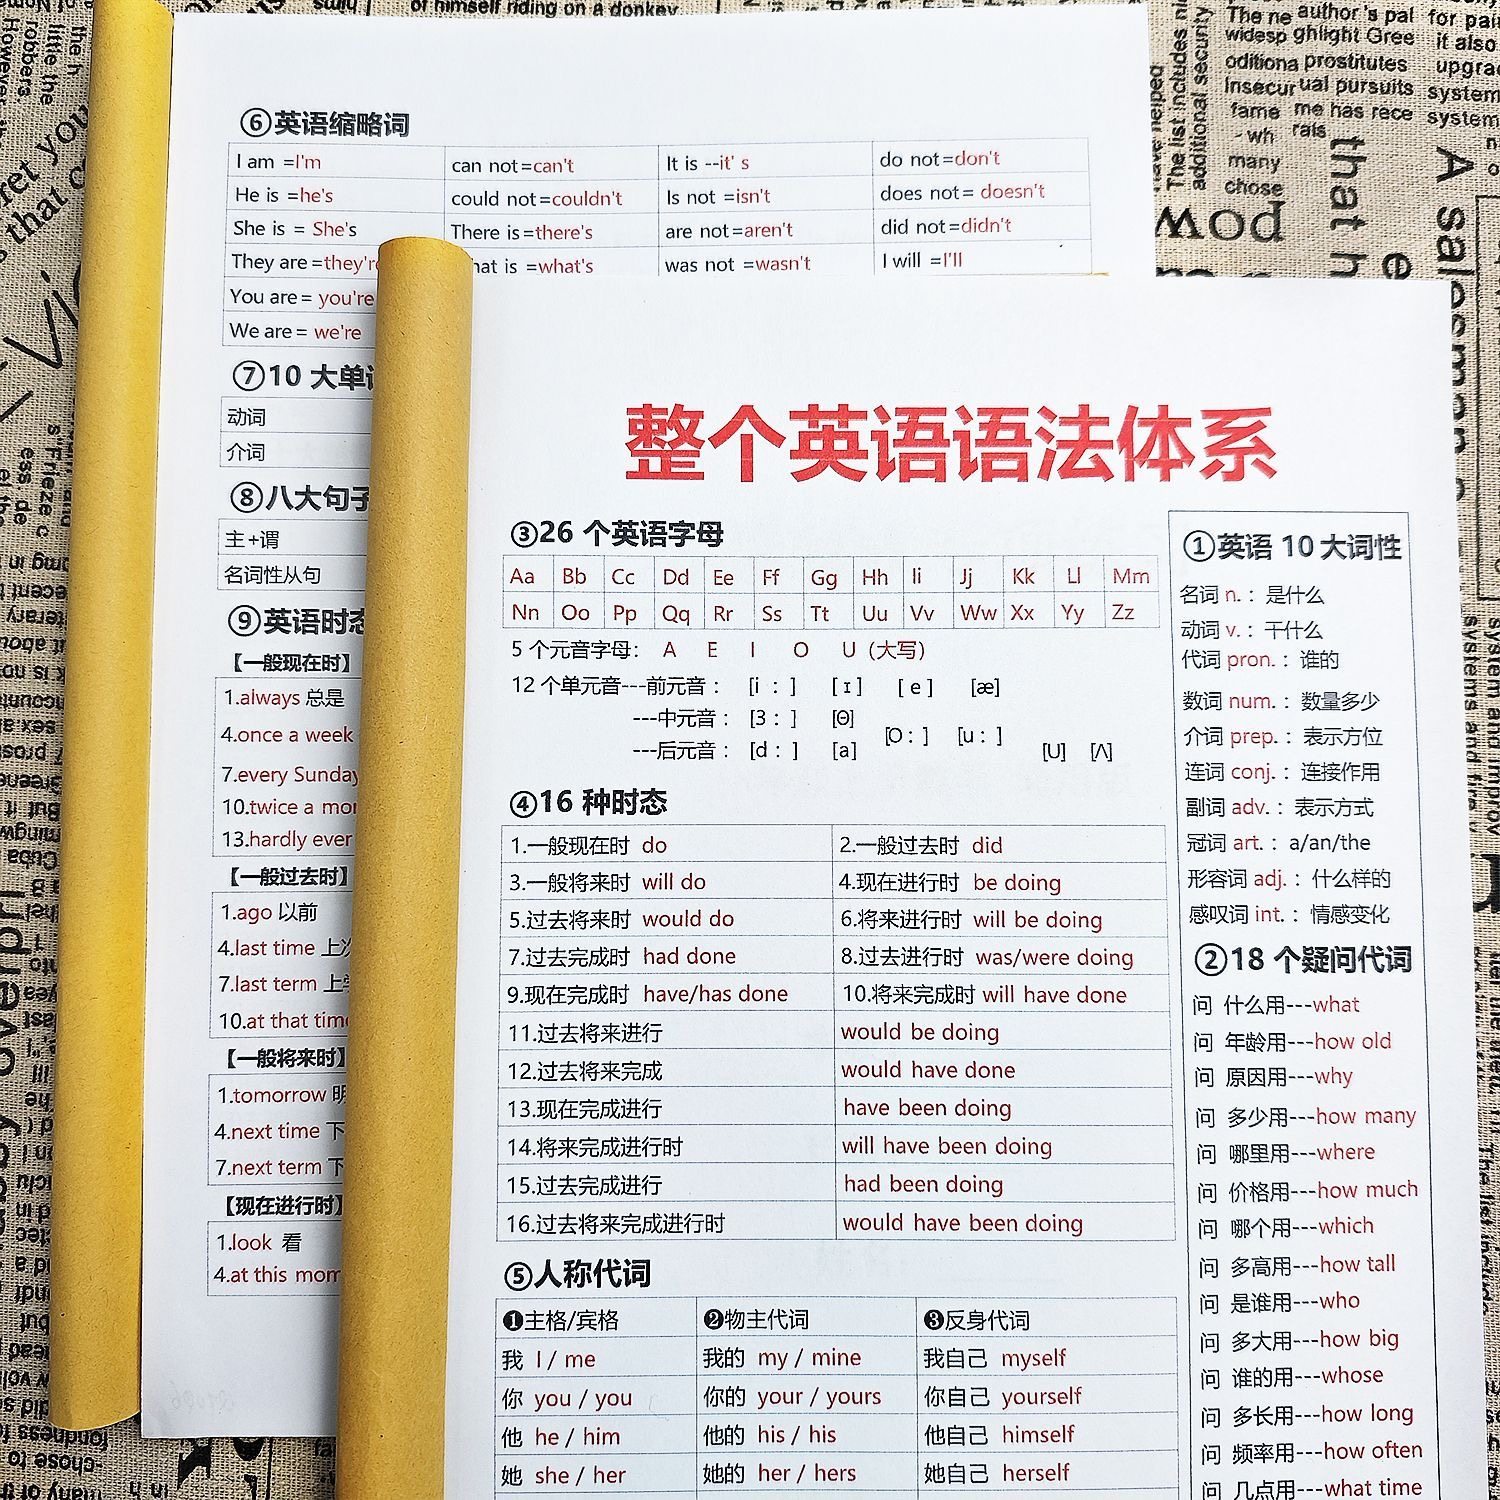 ⑥英语缩略词
I am =I'm can not=can't It is --it' s do not=don't
He is =he's could not=couldn't Is not =isn't does not= doesn't
She is = She's There is=there's are not=aren't did not=didn't
They are=they're hat is =what's was not =wasn't I will =I'll
You are= you're
We are= we're
⑦10 大单
动词
介词
⑧八大句子
主+谓
名词性从句
⑨英语时态
【一般现在时】
1.always 总是
4.once a week
7.every Sunday
10.twice a mor
13.hardly ever
【一般过去时】
1.ago 以前
4.last time 上次
7.last term 上学
10.at that time
【一般将来时】
1.tomorrow 明
4.next time 下
7.next term 下
【现在进行时】
1.look 看
4.at this mom
整个英语语法体系
③26 个英语字母
Aa Bb Cc Dd Ee Ff Gg Hh Ii Jj Kk Ll Mm
Nn Oo Pp Qq Rr Ss Tt Uu Vv Ww Xx Yy Zz
5 个元音字母： A E I O U（大写）
12 个单元音---前元音： [i ：] [ɪ] [e] [æ]
---中元音： [3：] [Θ]
[Ʊ：] [u：]
---后元音： [d：] [a] [U] [Λ]
④16 种时态
1.一般现在时 do 2.一般过去时 did
3.一般将来时 will do 4.现在进行时 be doing
5.过去将来时 would do 6.将来进行时 will be doing
7.过去完成时 had done 8.过去进行时 was/were doing
9.现在完成时 have/has done 10.将来完成时 will have done
11.过去将来进行 would be doing
12.过去将来完成 would have done
13.现在完成进行 have been doing
14.将来完成进行时 will have been doing
15.过去完成进行 had been doing
16.过去将来完成进行时 would have been doing
⑤人称代词
❶主格/宾格 ❷物主代词 ❸反身代词
我 I / me 我的 my / mine 我自己 myself
你 you / you 你的 your / yours 你自己 yourself
他 he / him 他的 his / his 他自己 himself
她 she / her 她的 her / hers 她自己 herself
①英语 10 大词性
名词 n.： 是什么
动词 v.： 干什么
代词 pron.： 谁的
数词 num.： 数量多少
介词 prep.： 表示方位
连词 conj.： 连接作用
副词 adv.： 表示方式
冠词 art.： a/an/the
形容词 adj.： 什么样的
感叹词 int.： 情感变化
②18 个疑问代词
问 什么用---what
问 年龄用---how old
问 原因用---why
问 多少用---how many
问 哪里用---where
问 价格用---how much
问 哪个用---which
问 多高用---how tall
问 是谁用---who
问 多大用---how big
问 谁的用---whose
问 多长用---how long
问 频率用---how often
问 几点用---what time